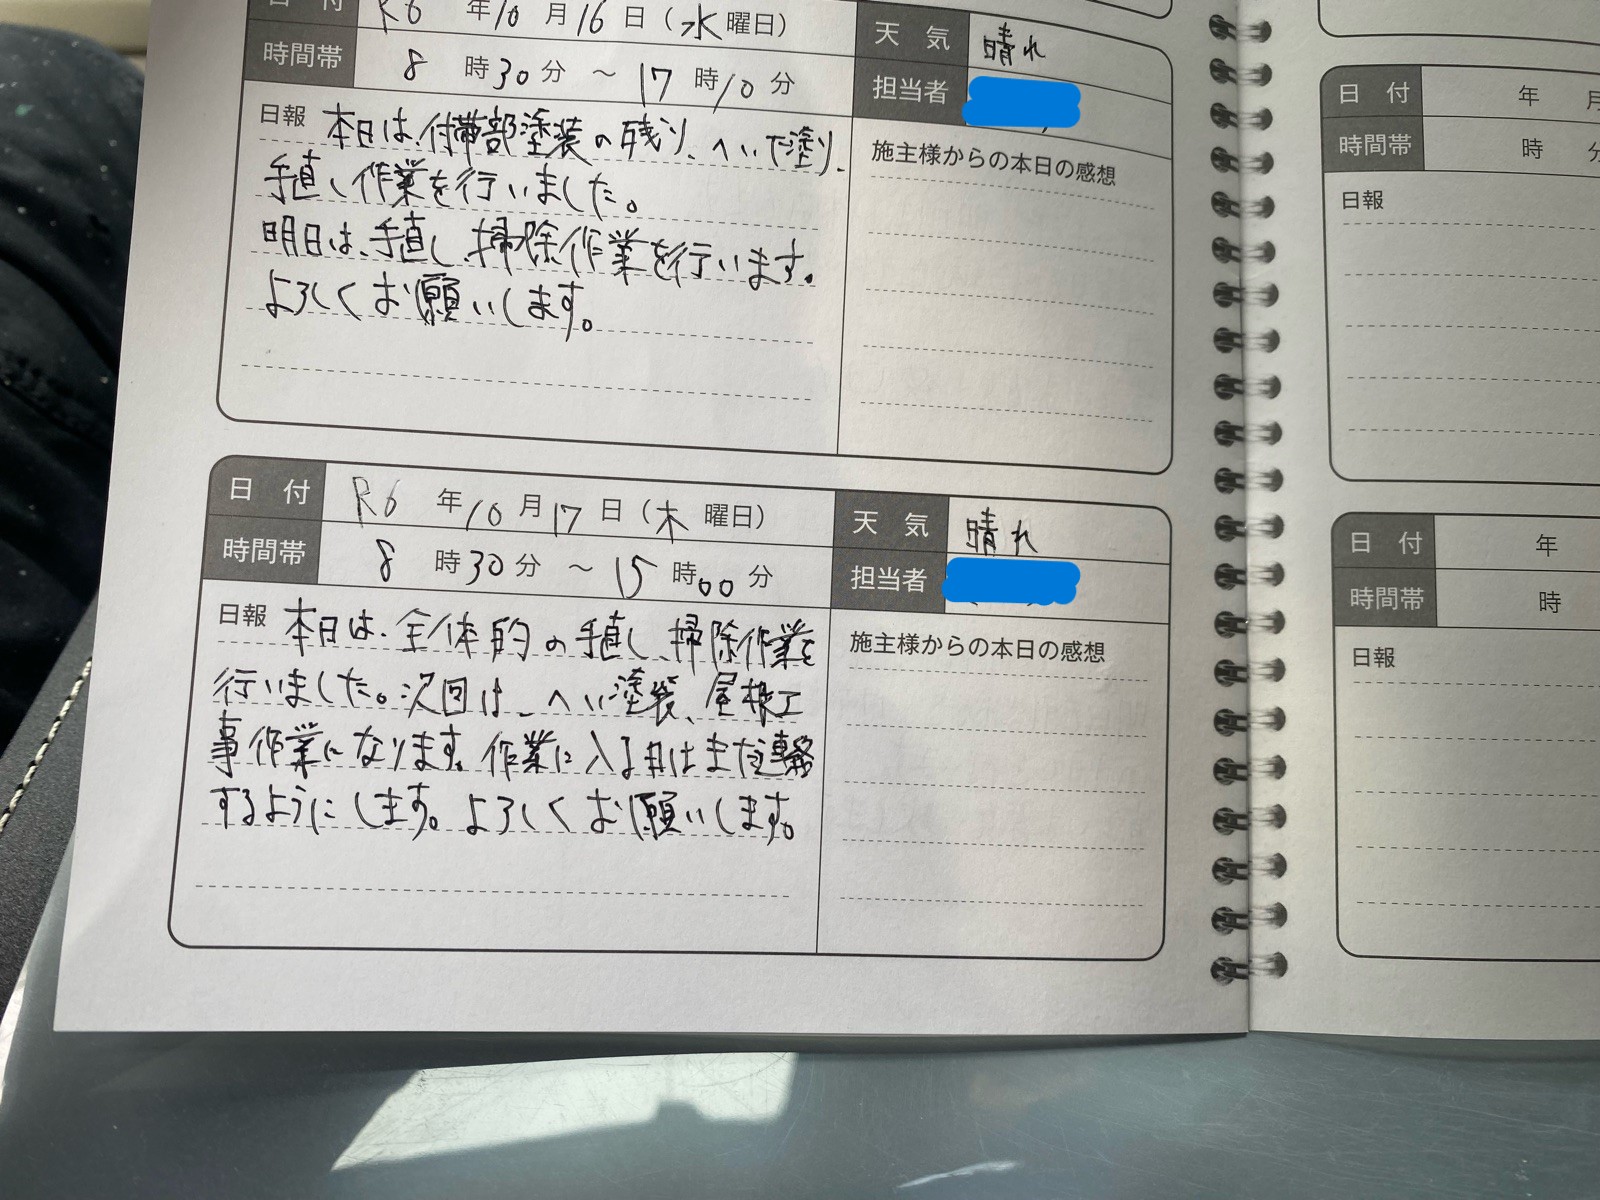 日付 R6年10月16日(水曜日) 天気 晴れ
時間帯 8時30分 ～ 17時10分 担当者
日報 本日は、付帯部塗装の残り、へい下塗り、
手直し作業を行いました。
明日は、手直し、掃除作業を行います。
よろしくお願いします。
施主様からの本日の感想
日付 R6年10月17日(木曜日) 天気 晴れ
時間帯 8時30分 ～ 15時00分 担当者
日報 本日は、全体的の手直し、掃除作業を
行いました。次回は、へい塗装、屋根工
事作業になります。作業に入る日はまた連絡
するようにします。よろしくお願いします。
施主様からの本日の感想
日付 年 月
時間帯 時 分
日報
日付 年
時間帯 時
日報